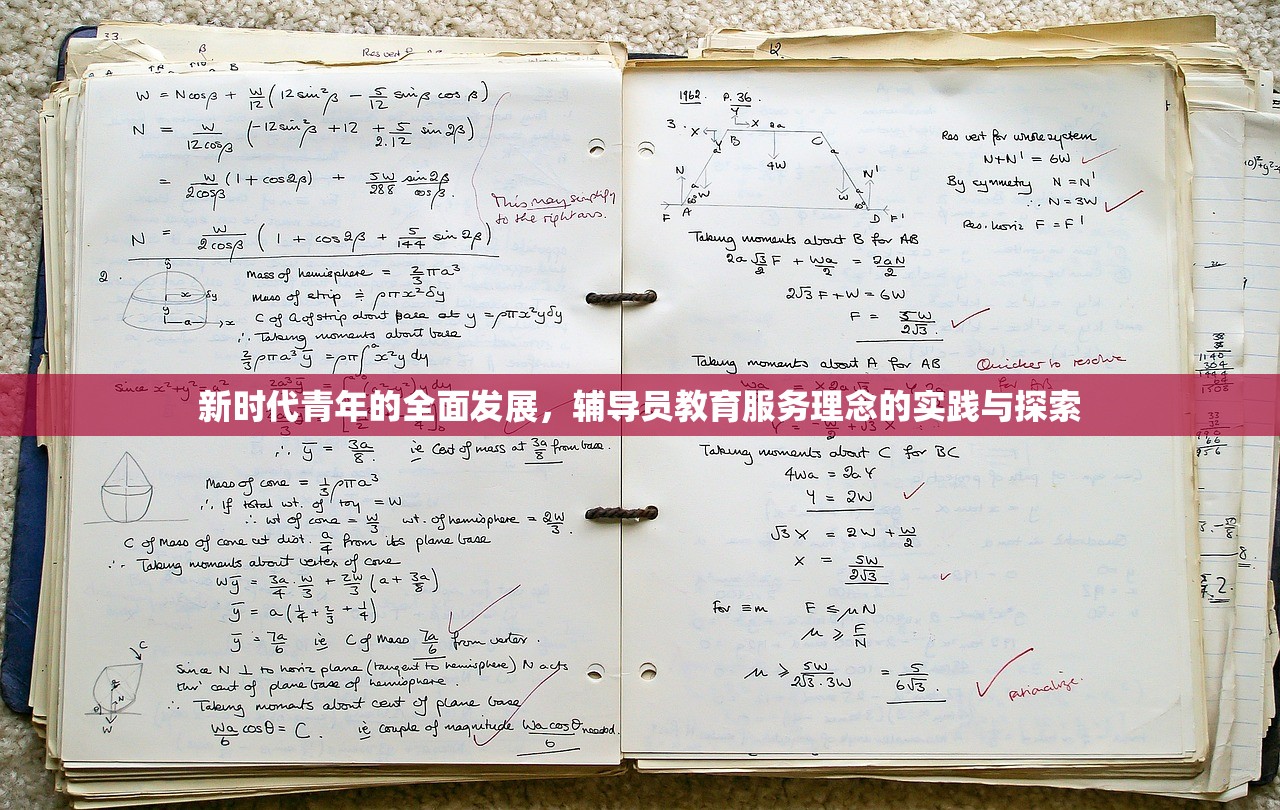 33.
β
B
W = N cos β + W/12 (12 sin²β − 5/12 sin β cos β)
N = W/12cosβ (−12 sin²β + 12 + 5/2.12 sin 2β)
= W/2cosβ (1 + cos 2β) + 5W/288 sin 2β/cos β.
This may simplify
to the right ans.
N = W/2cosβ (1 + cos 2β + 5/144 sin 2β)
2.
Mass of hemisphere = 2/3 πa³
mass of strip ≑ ρπx²δy
C of G of strip about base at y = ρπx²yδy
∴ Taking moments about base
2/3 ρπa³ȳ = ρπ∫x²y dy
since x²+y²=a²
新时代青年的全面发展，辅导员教育服务理念的实践与探索
∴ ȳ = 3a/8 ie Cent of mass at 3a/8 from base.
Mass of cone = 1/3 ρπa³
∴ If total wt. of toy = W
∴ wt of cone = W/3 wt. of hemisphere = 2W/3.
C of Mass of cone at dist. a/4 from its plane base
∴ Taking moments about vertex of cone
Wȳ = 3a/4 · W/3 + 2W/3 (a + 3a/8)
ȳ = a(1/4 + 2/3 + 1/4)
ȳ = 7a/6 ie C of Mass 7a/6 from vertex.
C
Since N ⊥ to horiz plane (tangent to hemisphere) N acts
thro' cent of plane base of hemisphere.
∴ Taking moments about cent of plane base
Wa/6 cos θ = C. ie couple of magnitude Wa cos θ/6 needed.
W
1962. P. 36.
3.
X
Y
B
C
4W
N
N'
W
W
F
A
D
F'
Res vert for whole system
N+N' = 6W
By symmetry N = N'
∴ N = 3W
Res. horiz F = F'
Taking moments about B for AB
2a √3/2 F + Wa/2 = 2aN/2
2√3 F + W = 6W
F = 5W/2√3.
Taking moments about A for AB
Quicker to resolve
for AB
Taking moments about C for BC
4Wa = 2aY
Y = 2W
√3 X = 2W + W/2
X = 5W/2√3
For ≡m F ≤ μN
μ ≥ F/N
μ ≥ 5W/2√3.3W = 5/6√3.
rationalize.